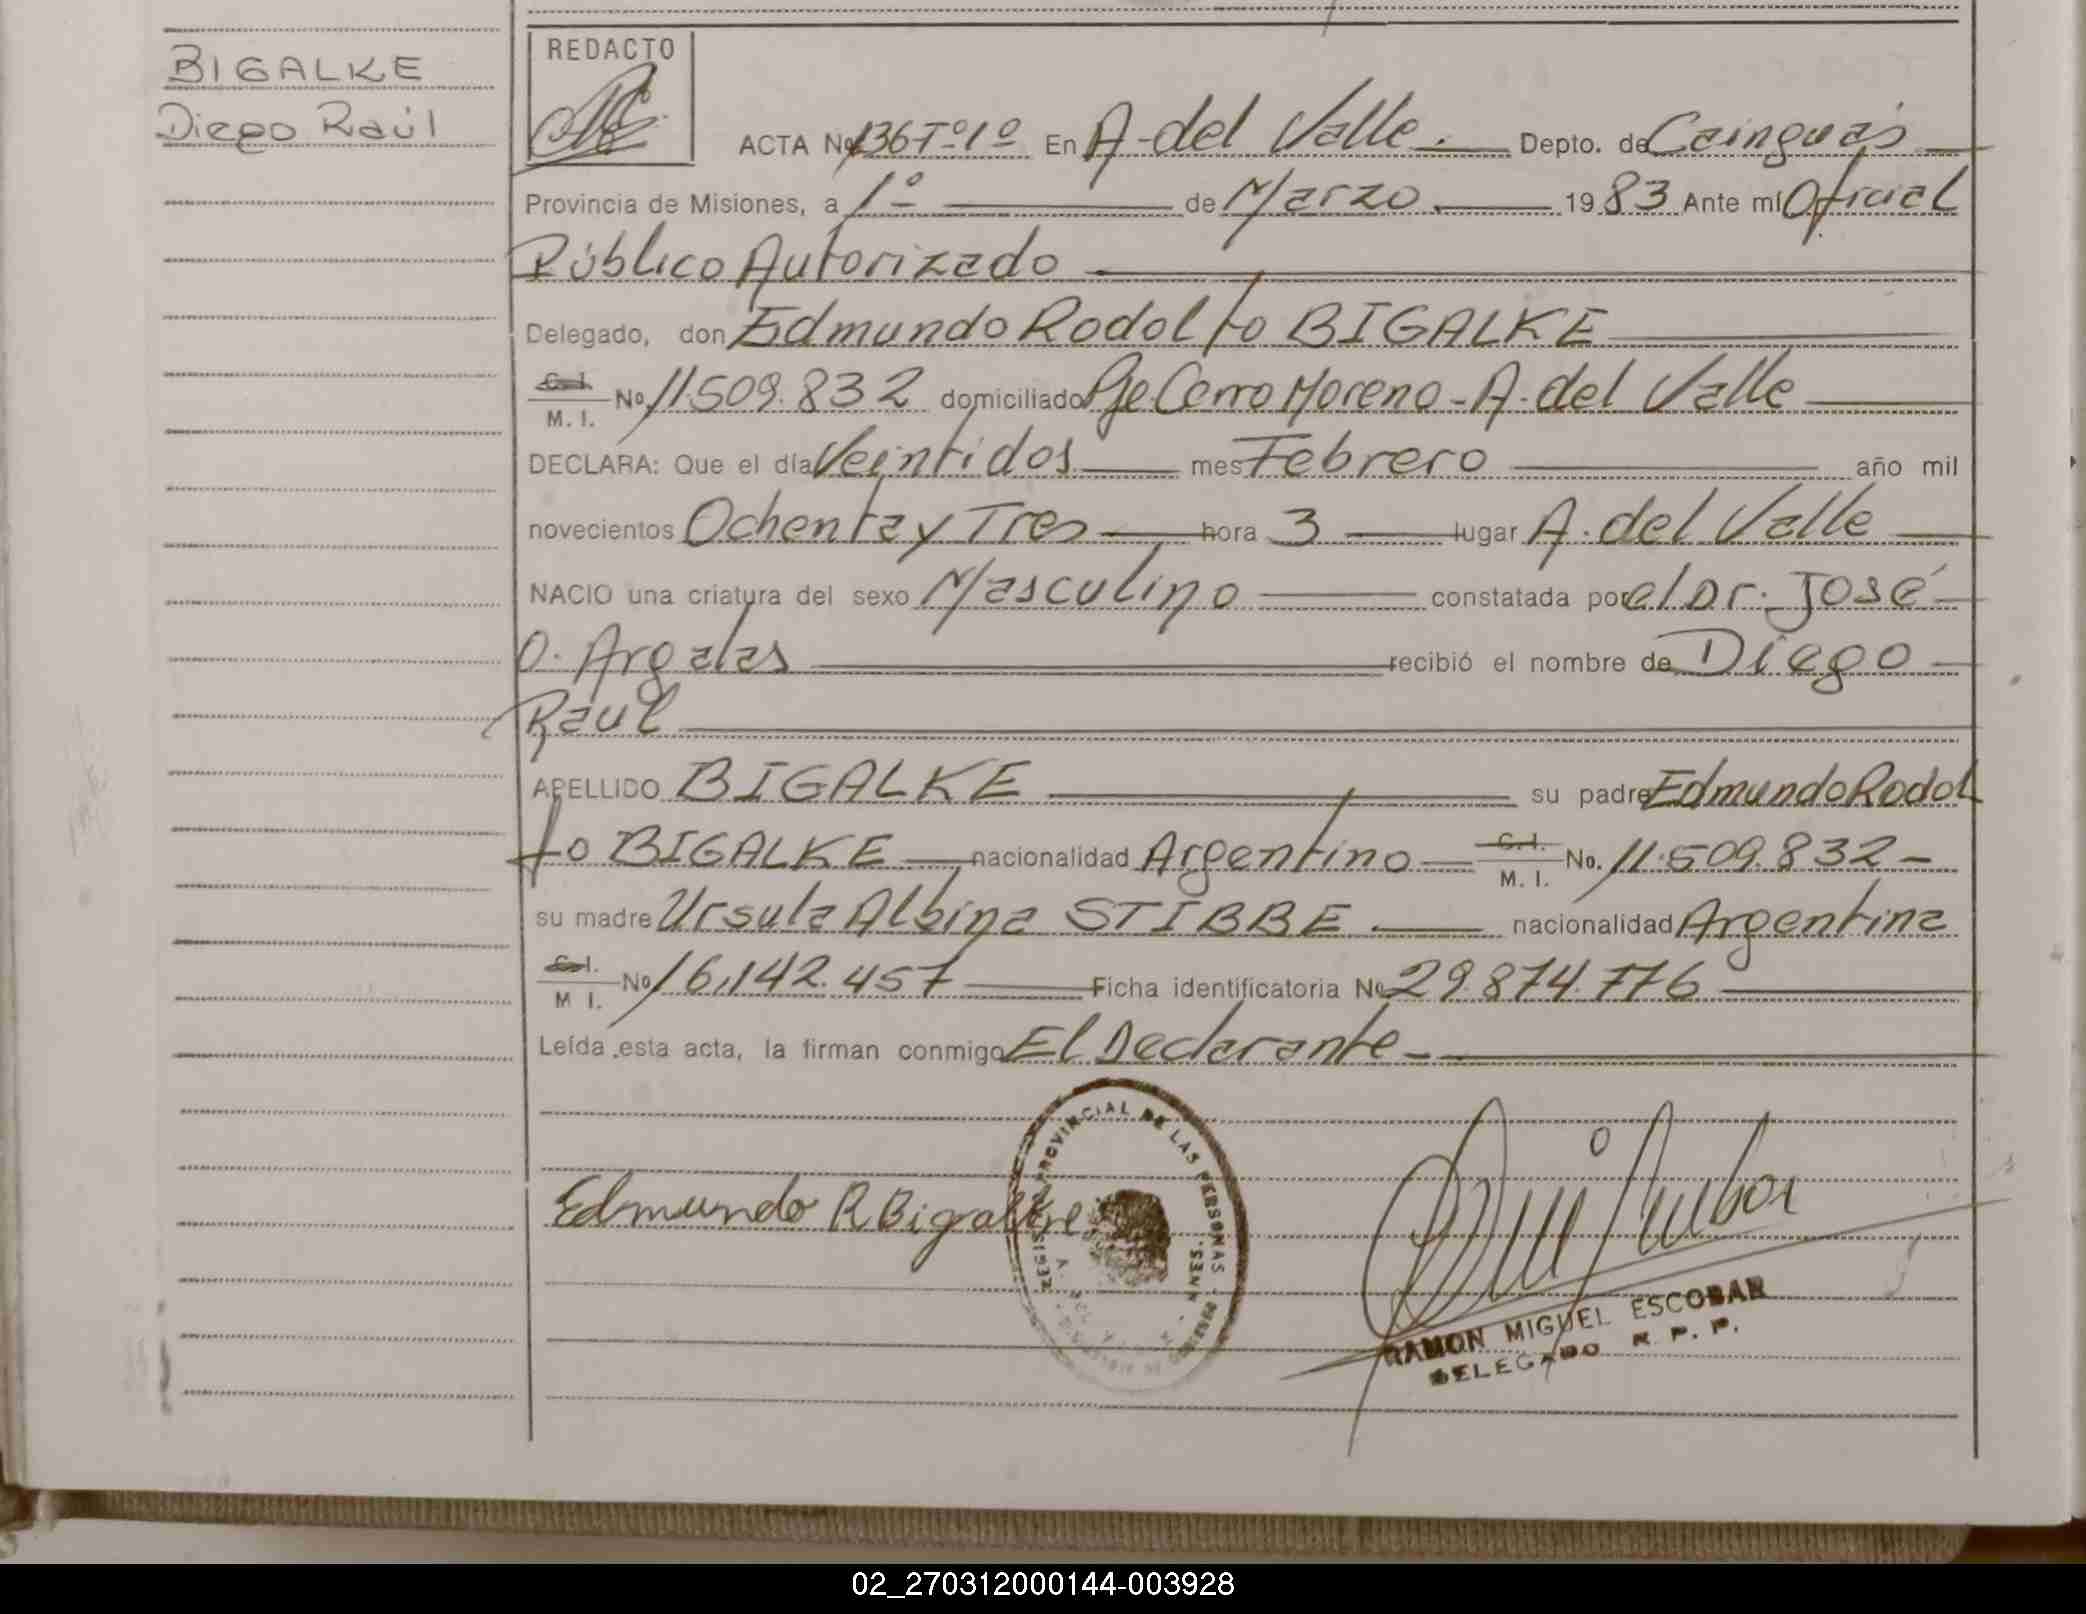 BIGALKE
Diego Raúl
REDACTO
ACTA No 136 Tº 1º En A. del Valle. Depto. de Cainguás
Provincia de Misiones, a 1º de Marzo 1983 Ante mí Oficial
Público Autorizado
Delegado, don Edmundo Rodolfo BIGALKE
C. I. M. I. No. 11.509.832 domiciliado Pje Cerro Moreno - A. del Valle
DECLARA: Que el día Veintidos mes Febrero año mil
novecientos Ochenta y Tres hora 3 lugar A. del Valle
NACIO una criatura del sexo Masculino constatada por el Dr. José
O. Argalas recibió el nombre de Diego
Raul
APELLIDO BIGALKE su padre Edmundo Rodol
fo BIGALKE nacionalidad Argentino C. I. M. I. No. 11.509.832 -
su madre Ursula Albina STIBBE nacionalidad Argentina
C. I. M I. No 16.142.457 Ficha identificatoria No 29.874.776
Leída esta acta, la firman conmigo El Declarante -
REGISTRO PROVINCIAL DE LAS PERSONAS
Edmundo R Bigalke
RAMON MIGUEL ESCOBAR
DELEGADO R. P. P.
02_270312000144-003928